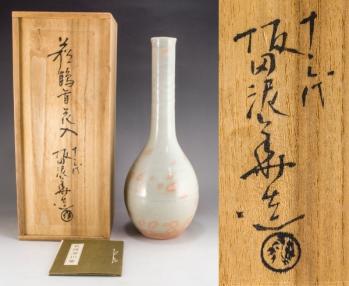 萩鶴首花入
十三代
坂田泥華造
十三代
坂田泥華造